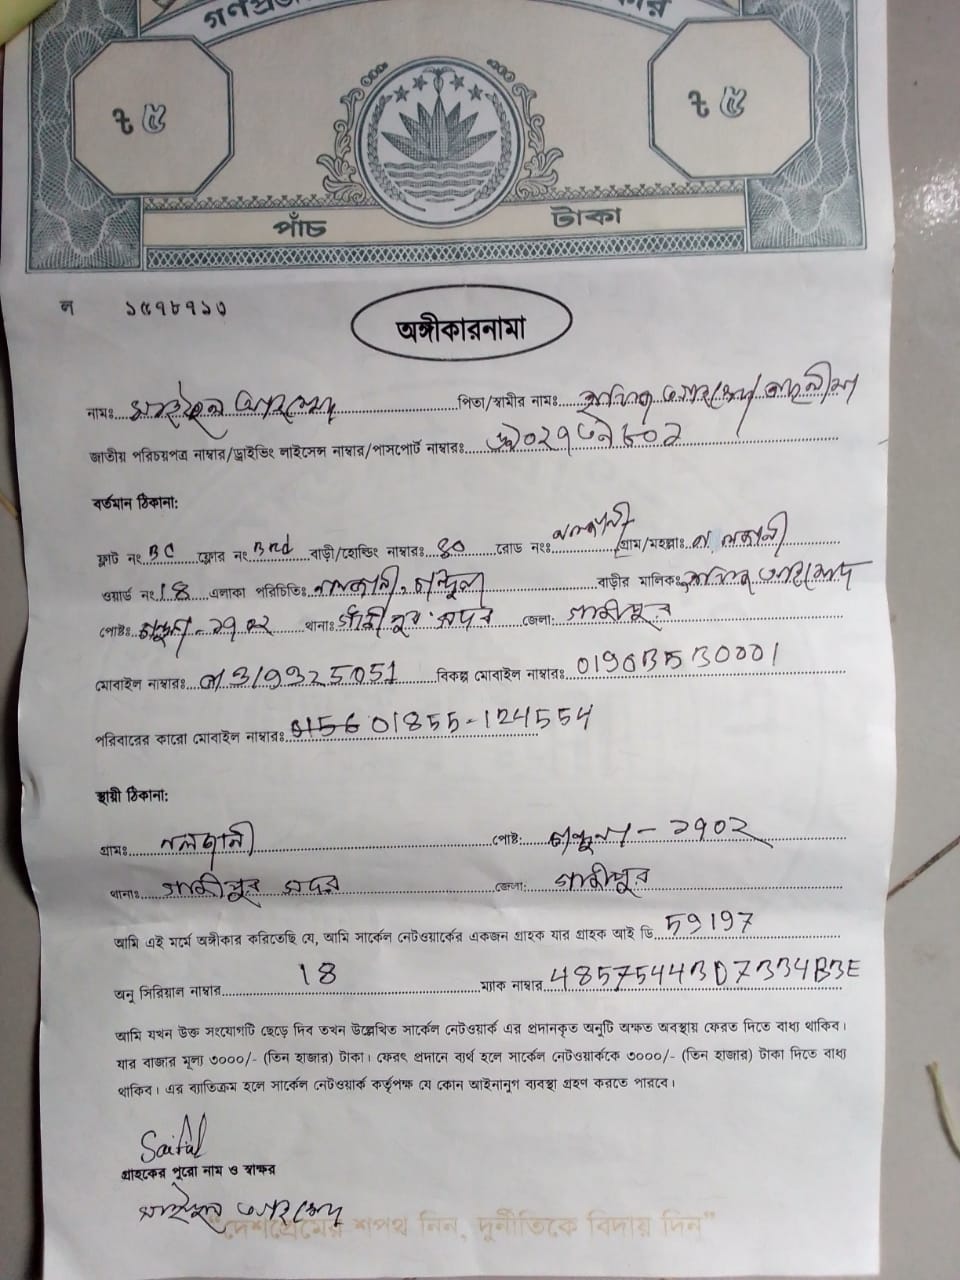 ৳ ৫ ৳ ৫
পাঁচ টাকা
ন ১৫৭৮৭১৩
অঙ্গীকারনামা
নামঃ সাইফুল আহম্মেদ পিতা/স্বামীর নামঃ
জাতীয় পরিচয়পত্র নাম্বার/ড্রাইভিং লাইসেন্স নাম্বার/পাসপোর্ট নাম্বারঃ
বর্তমান ঠিকানা:
ফ্লাট নং BC ফ্লোর নং 3rd বাড়ী/হোল্ডিং নাম্বারঃ 80 রোড নংঃ নলজানী গ্রাম/মহল্লাঃ নলজানী
ওয়ার্ড নং 18 এলাকা পরিচিতিঃ নলজানী, বাড়ীর মালিকঃ
পোষ্টঃ ১৭০২ থানাঃ গাজীপুর সদর জেলা: গাজীপুর
মোবাইল নাম্বারঃ 01319325051 বিকল্প মোবাইল নাম্বারঃ
পরিবারের কারো মোবাইল নাম্বারঃ 01855-124554
স্থায়ী ঠিকানা:
গ্রামঃ নলজানী পোষ্ট: ১৭০২
থানাঃ গাজীপুর সদর জেলা: গাজীপুর
আমি এই মর্মে অঙ্গীকার করিতেছি যে, আমি সার্কেল নেটওয়ার্কের একজন গ্রাহক যার গ্রাহক আই ডি 59197
অনু সিরিয়াল নাম্বার 18 ম্যাক নাম্বার 48575443D7334B3E
আমি যখন উক্ত সংযোগটি ছেড়ে দিব তখন উল্লেখিত সার্কেল নেটওয়ার্ক এর প্রদানকৃত অনুটি অক্ষত অবস্থায় ফেরত দিতে বাধ্য থাকিব।
যার বাজার মূল্য ৩০০০/- (তিন হাজার) টাকা। ফেরৎ প্রদানে ব্যর্থ হলে সার্কেল নেটওয়ার্ককে ৩০০০/- (তিন হাজার) টাকা দিতে বাধ্য
থাকিব। এর ব্যতিক্রম হলে সার্কেল নেটওয়ার্ক কর্তৃপক্ষ যে কোন আইনানুগ ব্যবস্থা গ্রহণ করতে পারবে।
Saiful
গ্রাহকের পুরো নাম ও স্বাক্ষর
সাইফুল আহম্মেদ
"দেশপ্রেমের শপথ নিন, দুর্নীতিকে বিদায় দিন"